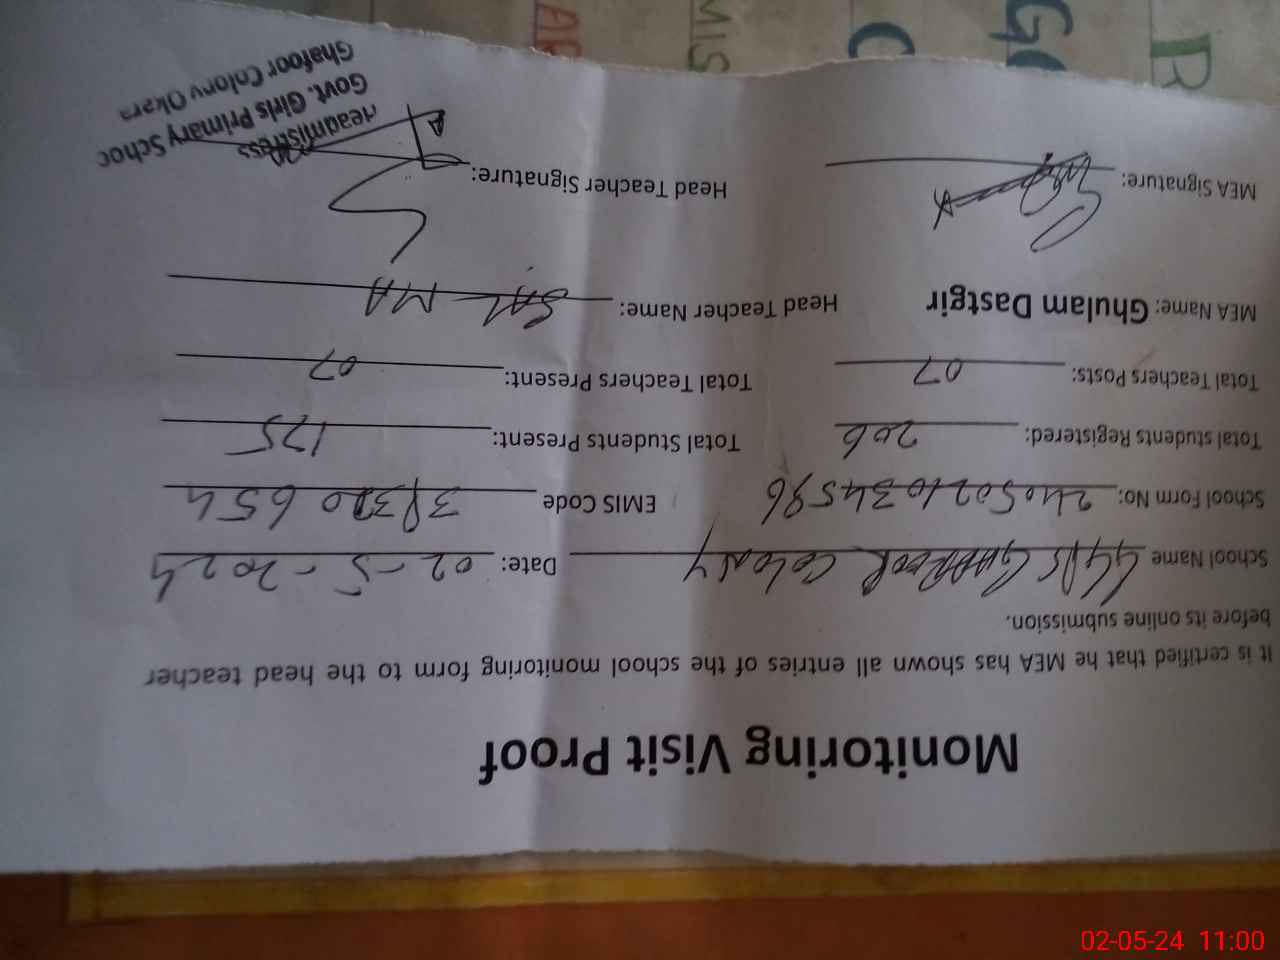 Monitoring Visit Proof
It is certified that he MEA has shown all entries of the school monitoring form to the head teacher
before its online submission.
School Name GGPS GHAFOOR COLONY Date: 02-5-2024
School Form No: 2405021034596 EMIS Code
Total students Registered: 206 Total Students Present: 125
Total Teachers Posts: 07 Total Teachers Present: 07
MEA Name: Ghulam Dastgir Head Teacher Name: SALMA
MEA Signature: Head Teacher Signature:
Headmistress
Govt. Girls Primary Schoo
Ghafoor Colony Okara
02-05-24 11:00